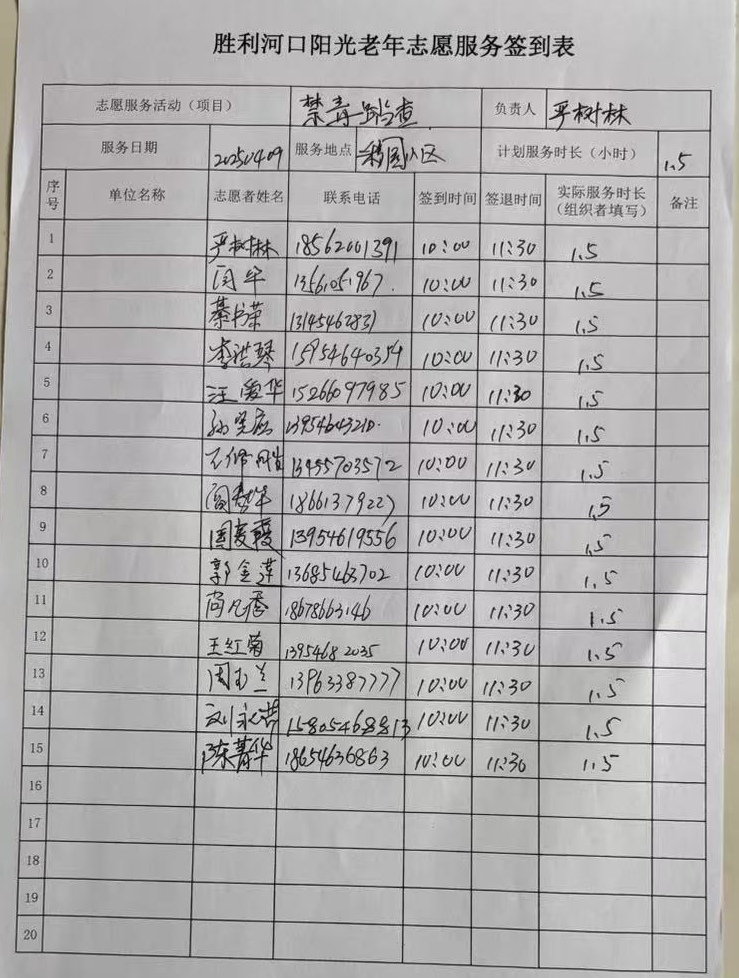 胜利河口阳光老年志愿服务签到表
志愿服务活动（项目） 禁毒 查 负责人 严树林
服务日期 20250409 服务地点 园小区 计划服务时长（小时） 1.5
序号 单位名称 志愿者姓名 联系电话 签到时间 签退时间 实际服务时长（组织者填写） 备注
1 严树林 18562001391 10:00 11:30 1.5
2 闫华 10:00 11:30 1.5
3 綦书荣 10:00 11:30 1.5
4 李洪琴 15954640354 10:00 11:30 1.5
5 汪爱华 15266097985 10:00 11:30 1.5
6 10:00 11:30 1.5
7 13455703572 10:00 11:30 1.5
8 18661379227 10:00 11:30 1.5
9 周爱霞 13954619556 10:00 11:30 1.5
10 郭金莲 13685463702 10:00 11:30 1.5
11 18678663146 10:00 11:30 1.5
12 王红菊 1395468 2035 10:00 11:30 1.5
13 周玉兰 13963387777 10:00 11:30 1.5
14 刘永 15805468813 10:00 11:30 1.5
15 陈菁华 18654636863 10:00 11:30 1.5
16
17
18
19
20